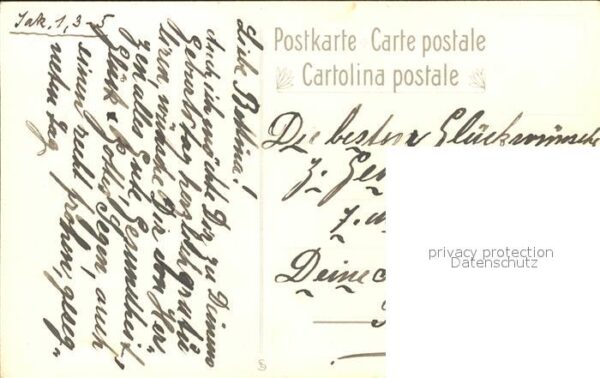 Jak. 1, 3-5
Liebe Bettina!
Auch ich möchte Dir zu Deinem
Geburtstag herzlich gratu
lieren, wünsche Dir von Her„
zen alles Gute, Gesundheit,
Glück u. Gottes Segen, auch
einen recht frohen, geseg„
neten Tag
Postkarte Carte postale
Cartolina postale
Die besten Glückwünsche
z. Ge
Deine
privacy protection
Datenschutz